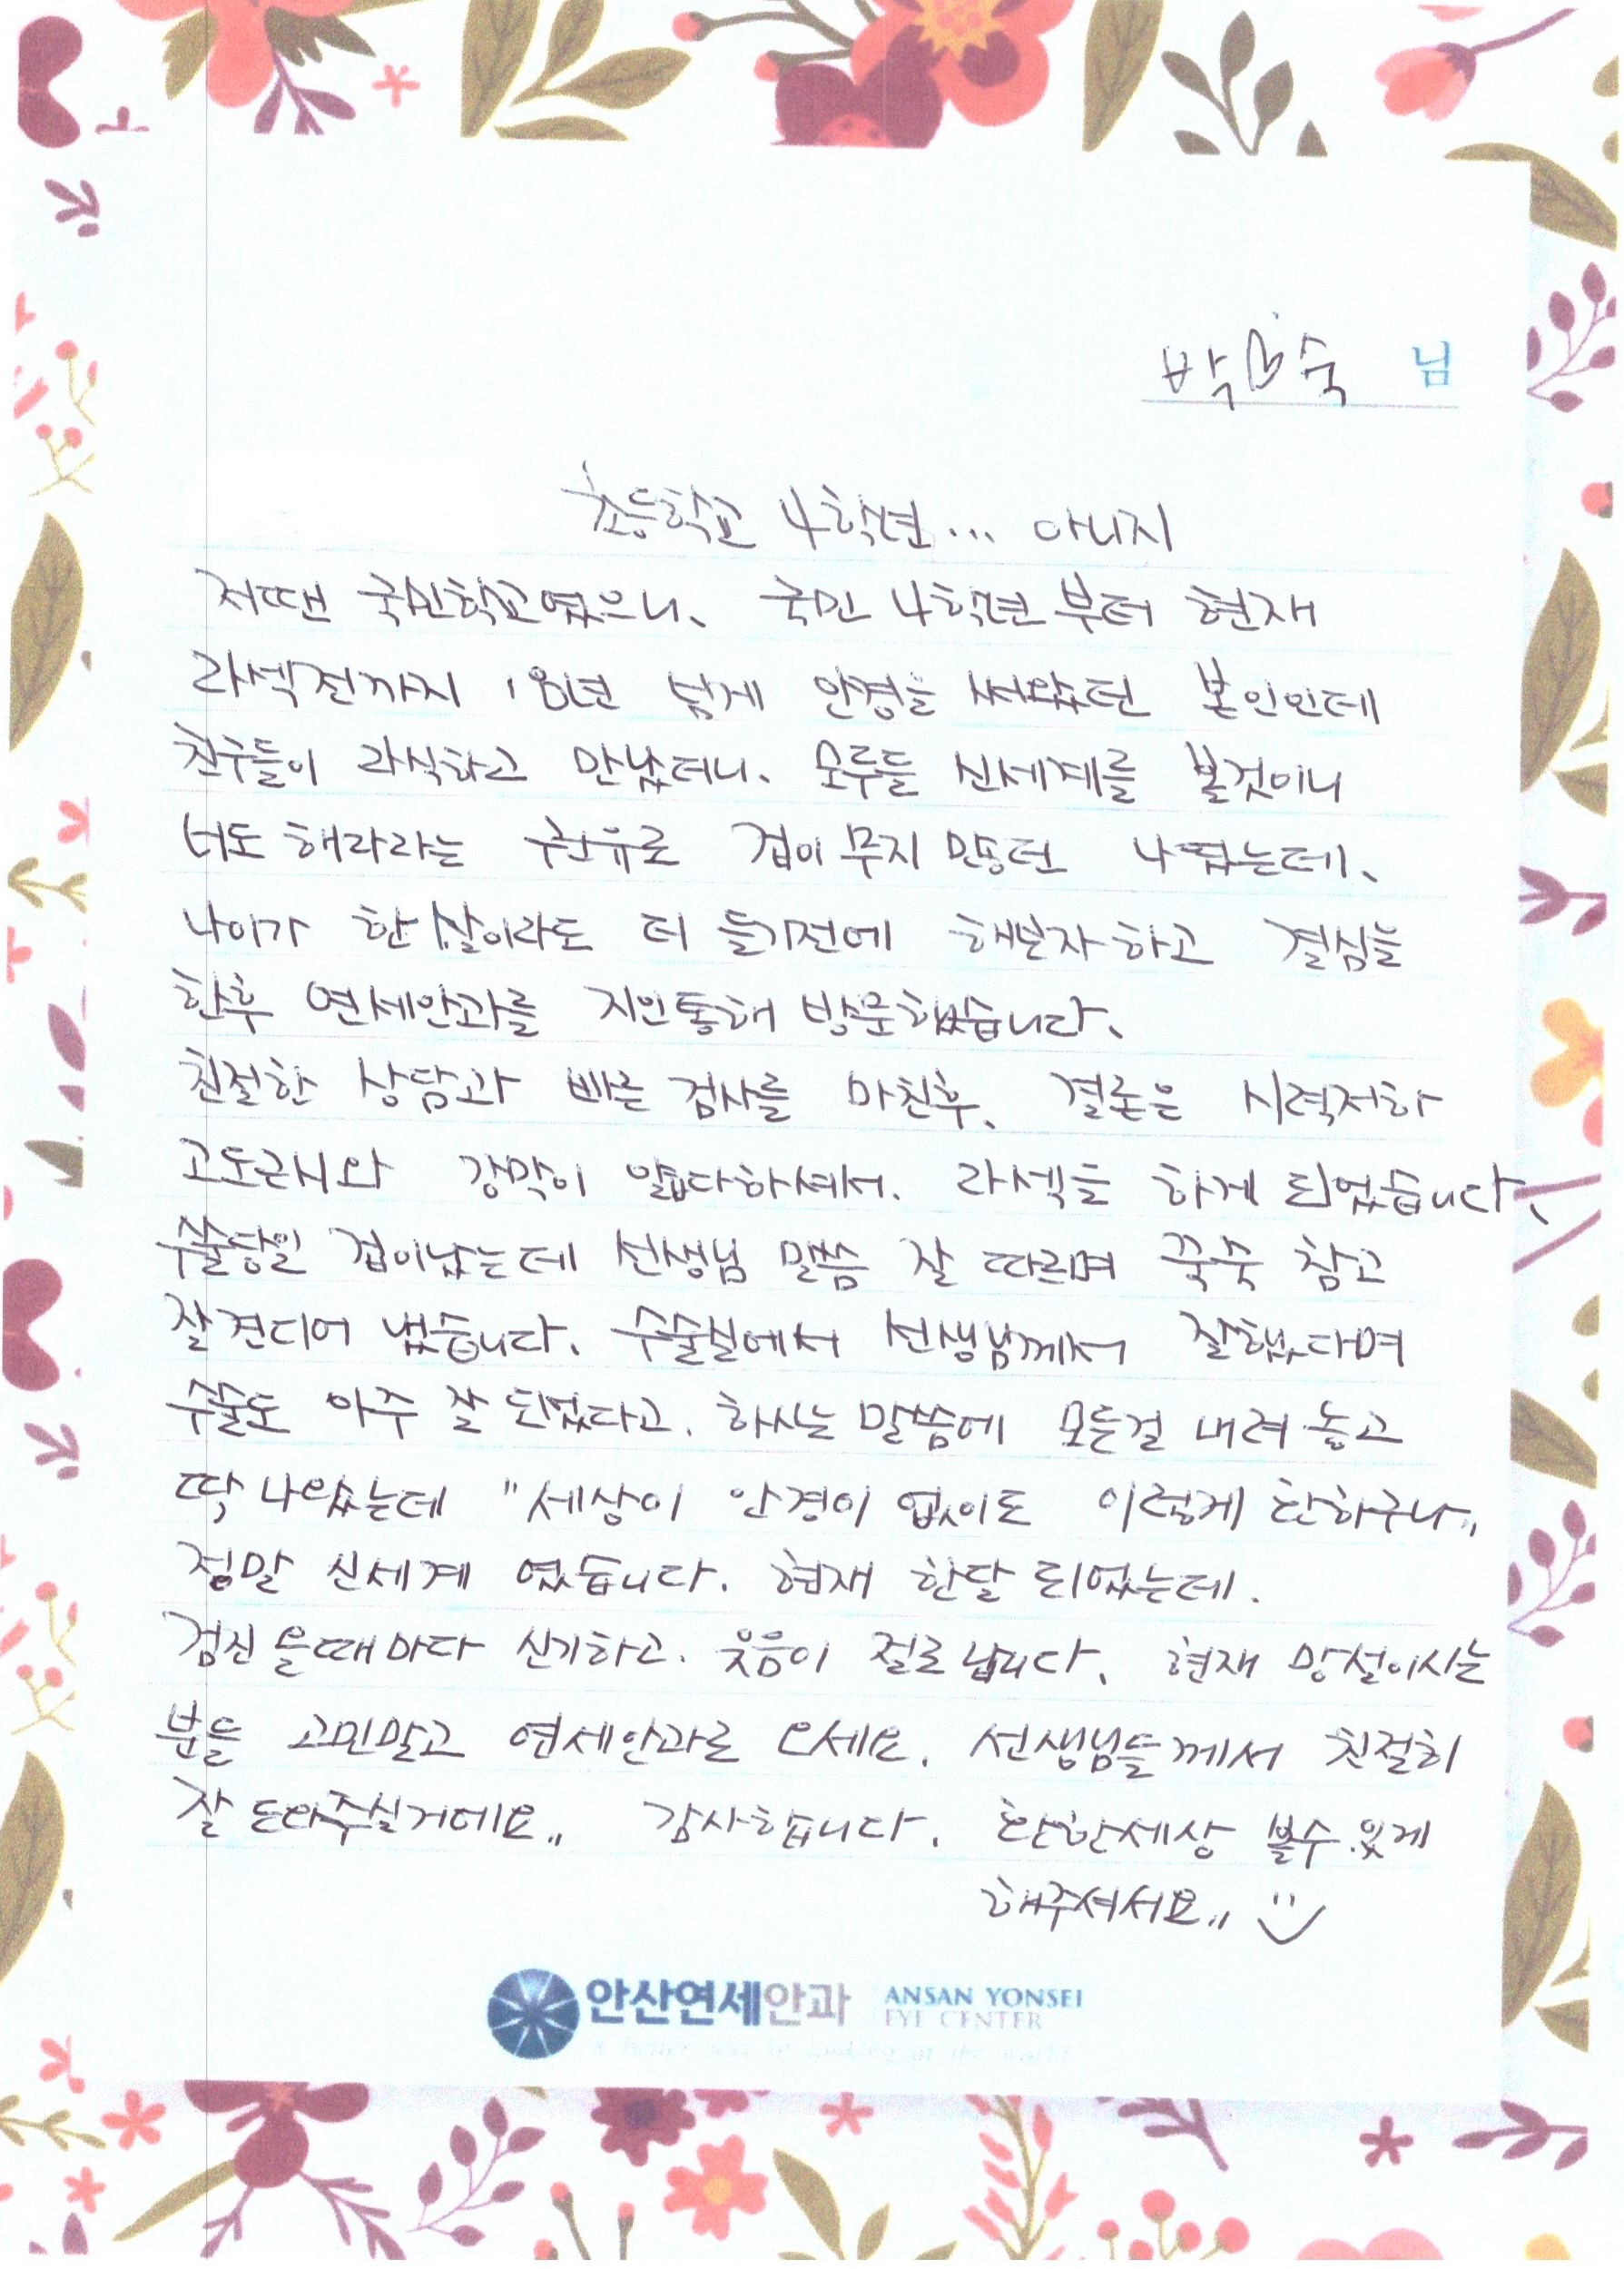 박♡숙 님
초등학교 4학년... 아니지
저땐 국민학교였으니, 국민 4학년부터 현재
라섹전까지 18년 넘게 안경을 써왔던 본인인데
친구들이 라식하고 만났더니. 모두들 신세계를 볼것이니
너도 해라라는 권유로 겁이 무지 많던 나였는데,
나이가 한살이라도 더 들기전에 해보자하고 결심을
한후 연세안과를 지인통해 방문했습니다.
친절한 상담과 빠른 검사를 마친후, 결론은 시력저하
고도근시와 강막이 얇다하셔서. 라섹을 하게 되었습니다.
수술당일 겁이났는데 선생님 말씀 잘 따르며 꾹꾹 참고
잘 견디어 냈습니다. 수술실에서 선생님께서 잘했다며
수술도 아주 잘 되었다고. 하시는 말씀에 모든걸 내려놓고
딱 나왔는데 "세상이 안경이 없이도 이렇게 환하구나"
정말 신세계 였습니다. 현재 한달 되었는데.
검진 올때마다 신기하고. 웃음이 절로납니다. 현재 망설이시는
분들 고민말고 연세안과로 오세요. 선생님들께서 친절히
잘 도와주실거에요,, 감사합니다. 환한세상 볼수있게
해주셔서요,,
안산연세안과 ANSAN YONSEI
EYE CENTER